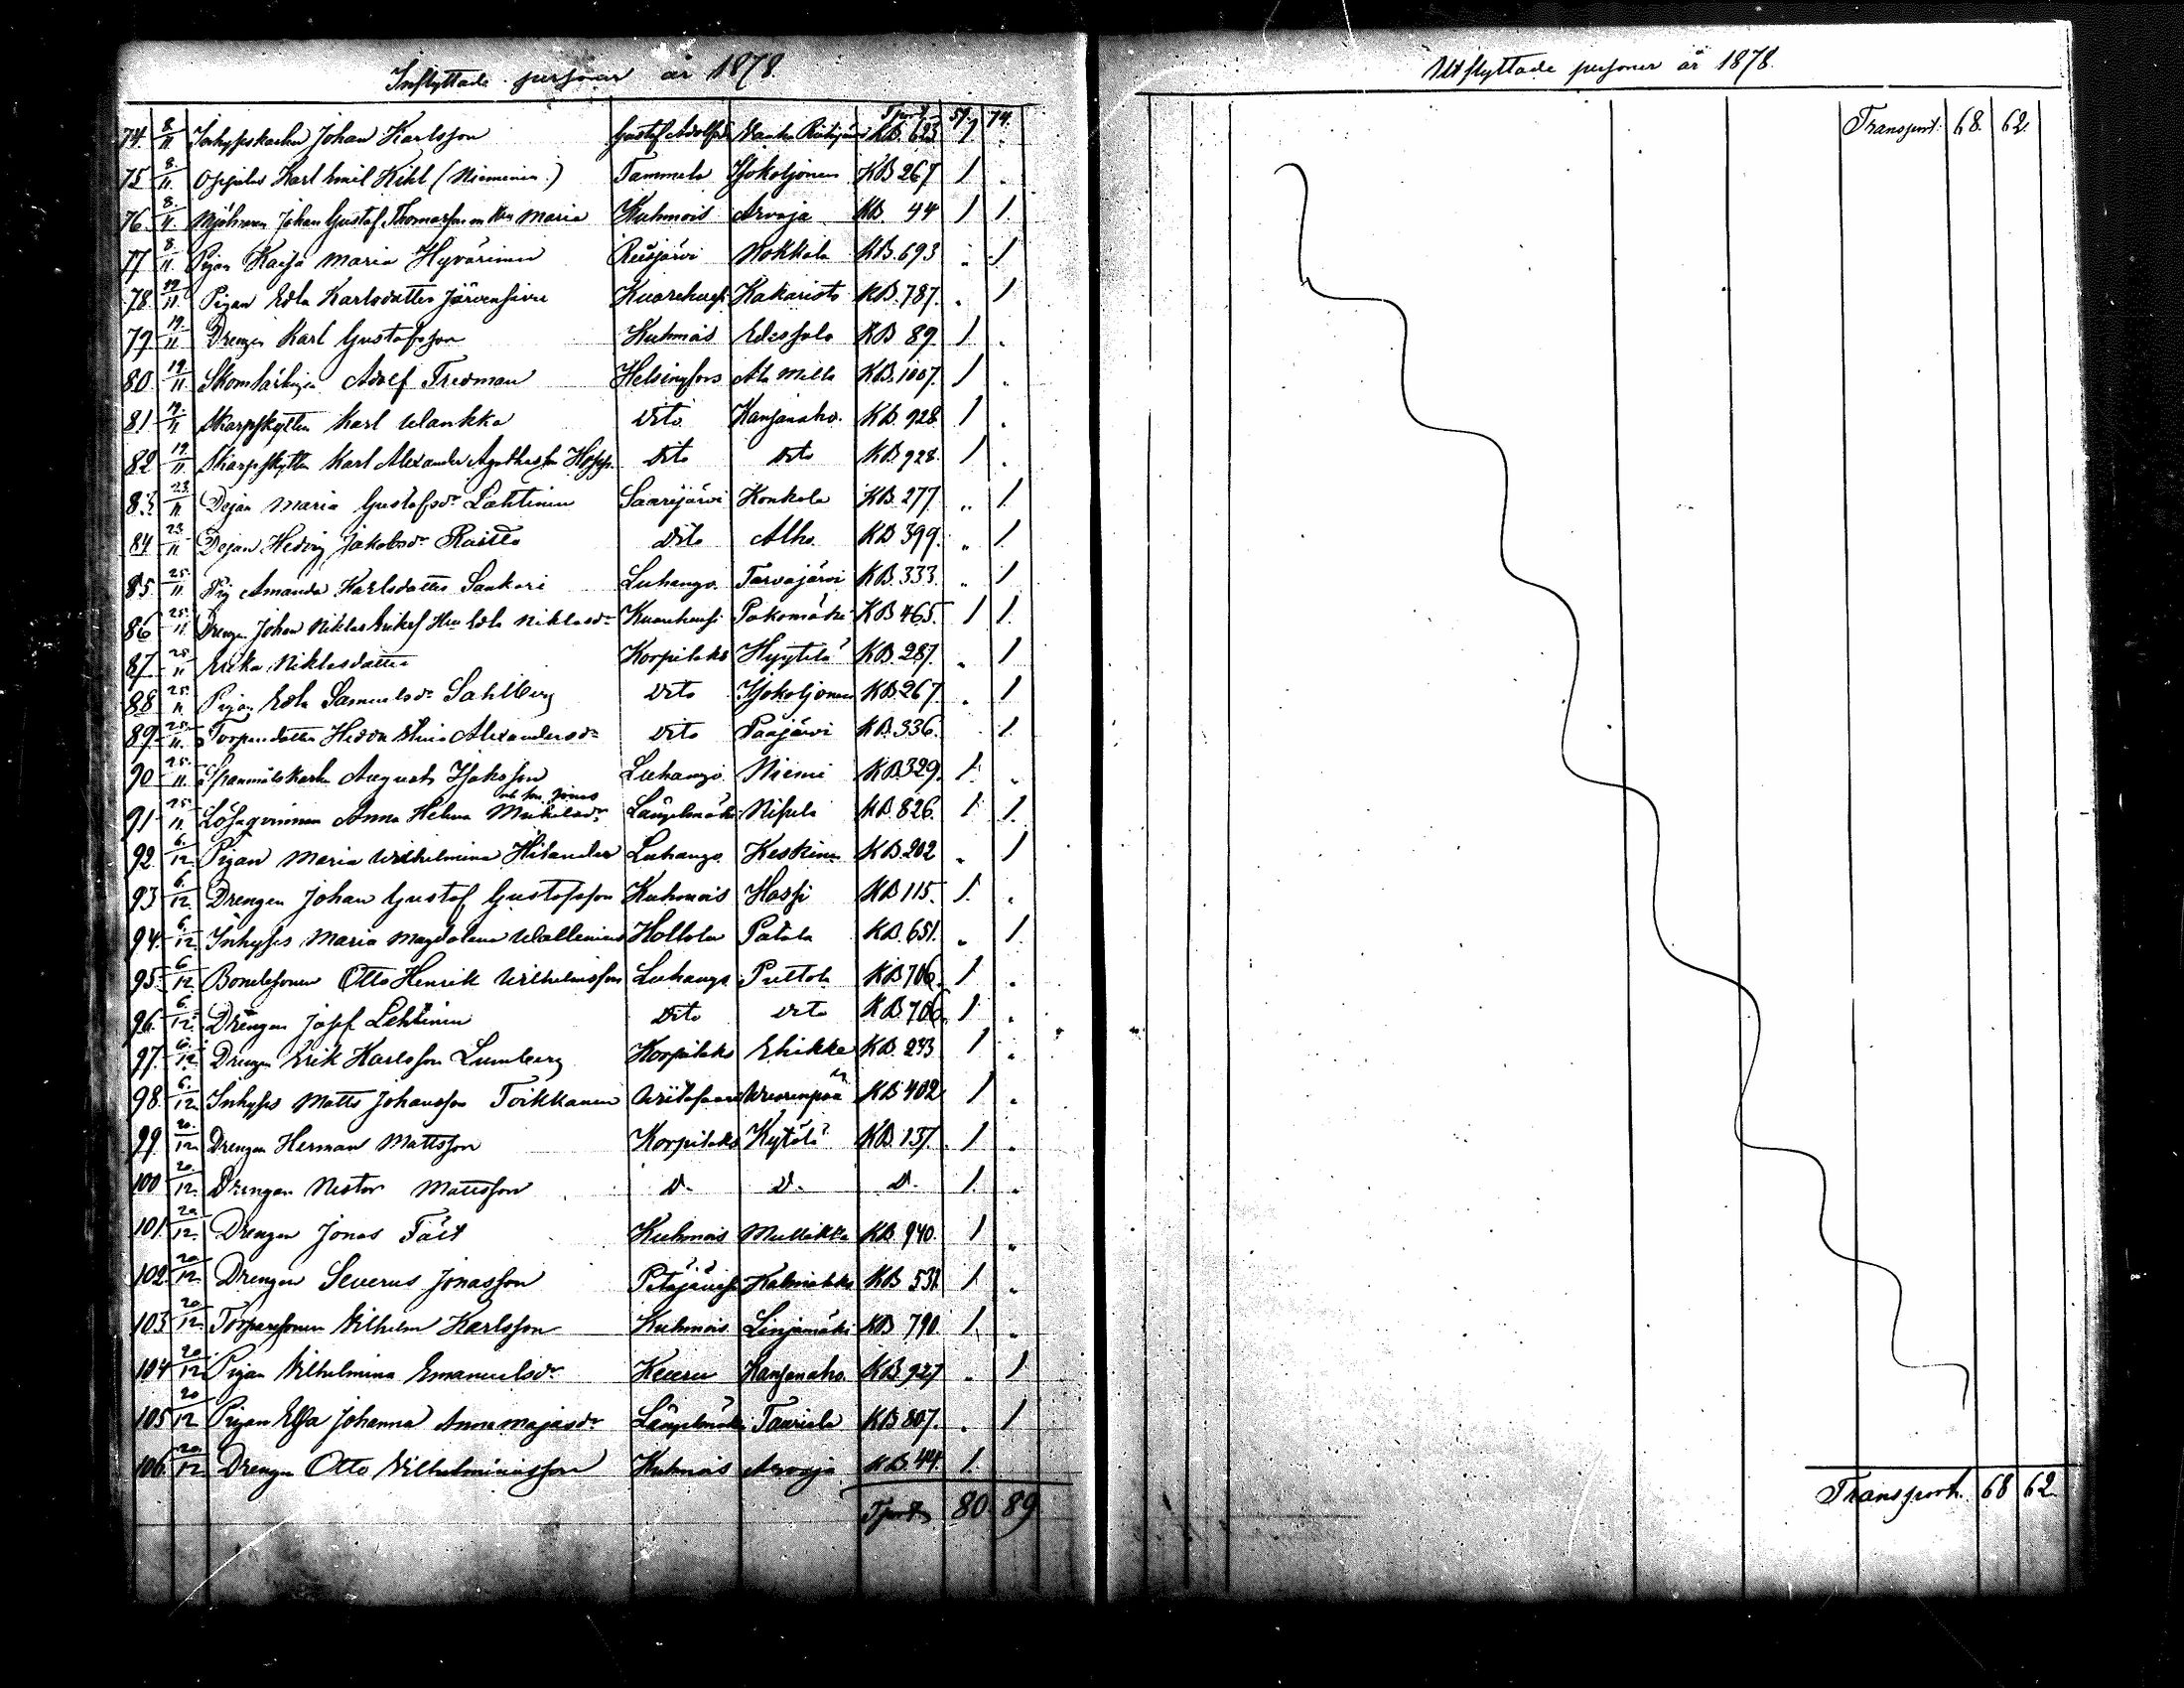 Inflyttade personer år 1878.
Tport 57. 74.
74. 8/11 Inhysskarlen Johan Karlsson Gustaf Adolfs KB. 623 1
75 8/11. Karl Emil Kihl (Nieminen) Tammela Isokoljonen KB 267 1
76. 8/11. Mjölnaren Johan Gustaf Thomasson Maria Kuhmois Arvaja KB. 44 1 1.
77 8/11. Pigan Kaisa Maria Hyvärinen Reisjärvi Nokkala KB. 693 1
78. 19/11. Pigan Edla Karlsdotter Järvensivu Kuorehvesi Kakaristo KB. 787. 1
79 19/11. Drengen Karl Gustafsson Kuhmois Edessalo KB 89 1
80 19/11. Adolf Fredman Helsingfors Ala Mella KB. 1007. 1
81 19/11 Skarpskytten Karl Wankka Dito Kansanaho. KB. 928 1
82 19/11. Skarpskytten Karl Alexander Dito Dito KB. 928. 1
83 23/11 Dejan Maria Gustafsdr Lahtinen Saarijärvi Konkola KB. 277 1.
84 23/11 Dejan Hedvig Jakobsdr Dito Alho. KB 399. 1.
85 25/11. Pig Amanda Karlsdotter Sankari Luhango Tarvajärvi KB. 333. 1
86 25/11. Drengen Johan Niklas Edla Niklasdr Kuorehvesi Pakomäki KB 465. 1 1.
87 25/11 Erika Niklasdotter Korpilaks Hyytilä KB. 287. 1
88 25/11. Pigan Edla Samuelsdr Sahlberg Dito Isokoljonen KB. 267. 1
89. 25/11. Torparedotter Hedda Alexandersdr Dito Paajärvi KB. 336. 1.
90 25/11. August Isaksson Luhango Niemi KB 329. 1.
och son Jonas
91 25/11. Lösaqvinnan Anna Helena Mickelsdr Längelmäki KB 826. 1 1.
92 6/12. Pigan Maria Wilhelmina Hilander Luhango Keskinen KB. 202 1
93 6/12. Drengen Johan Gustaf Gustafsson Kuhmois Hassi KB 115. 1.
94. 6/12. Inhyses Maria Magdalena Wallenius Hollola Patala KB. 651. 1.
95. 6/12. Bondesonen Otto Henrik Wilhelmsson Luhango Puttola KB 706. 1
96. 6/12. Drengen Josef Lehtinen Dito Dito KB 706. 1
97. 6/12. Drengen Erik Karlsson Lumberg Korpilaks KB. 233 1
98. 6/12. Inhyses Matts Johansson Toikkanen Wiitasaari KB 402 1
99. 20/12. Drengen Herman Mattsson Korpilaks Kytölä KB. 137. 1
100 20/12. Drengen Nestor Mattsson D. D. D. 1.
101. 20/12. Drengen Jonas Fält Kuhmois Mullikka KB. 940. 1
102 20/12. Drengen Severus Jonasson Petäjävesi KB 532 1
103 20/12. Torparesonen Wilhelm Karlsson Kuhmois Linjamäki KB 790. 1.
104 20/12 Pigan Wilhelmina Emanuelsdr Keuru Kansanaho. KB. 927 1
105 20/12 Pigan Elsa Johanna Annamajasdr Längelmäki KB 807. 1
106. 20/12 Drengen Otto Kuhmois Arvaja KB. 44. 1.
Tport 80. 89.
Utflyttade personer år 1878.
Transport. 68. 62.
Transport. 68 62.